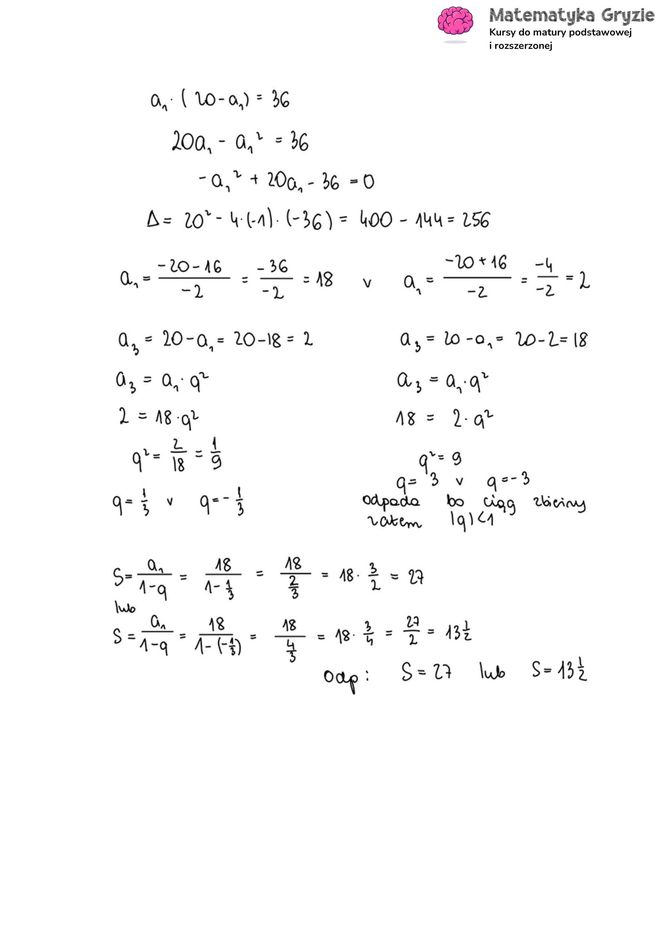 Matematyka Gryzie
Kursy do matury podstawowej
i rozszerzonej
a₁·(20-a₁) = 36
20a₁ - a₁² = 36
-a₁² + 20a₁ - 36 = 0
Δ = 20² - 4·(-1)·(-36) = 400 - 144 = 256
a₁ = (-20-16)/(-2) = (-36)/(-2) = 18 v a₁ = (-20+16)/(-2) = (-4)/(-2) = 2
a₃ = 20-a₁ = 20-18 = 2 a₃ = 20-a₁ = 20-2 = 18
a₃ = a₁·q² a₃ = a₁·q²
2 = 18·q² 18 = 2·q²
q² = 2/18 = 1/9 q² = 9
q = 3 v q = -3
q = 1/3 v q = -1/3 odpada bo ciąg zbieżny
zatem |q|<1
S = a₁/(1-q) = 18/(1-1/3) = 18/(2/3) = 18·3/2 = 27
lub
S = a₁/(1-q) = 18/(1-(-1/3)) = 18/(4/3) = 18·3/4 = 27/2 = 13 1/2
Odp: S = 27 lub S = 13 1/2